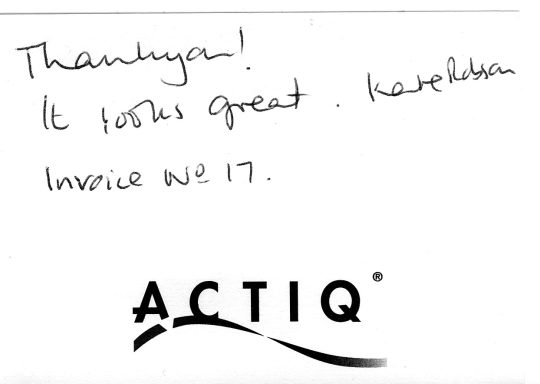 Thankyou!
It looks great. Kate Robson
Invoice No 17.
ACTIQ®